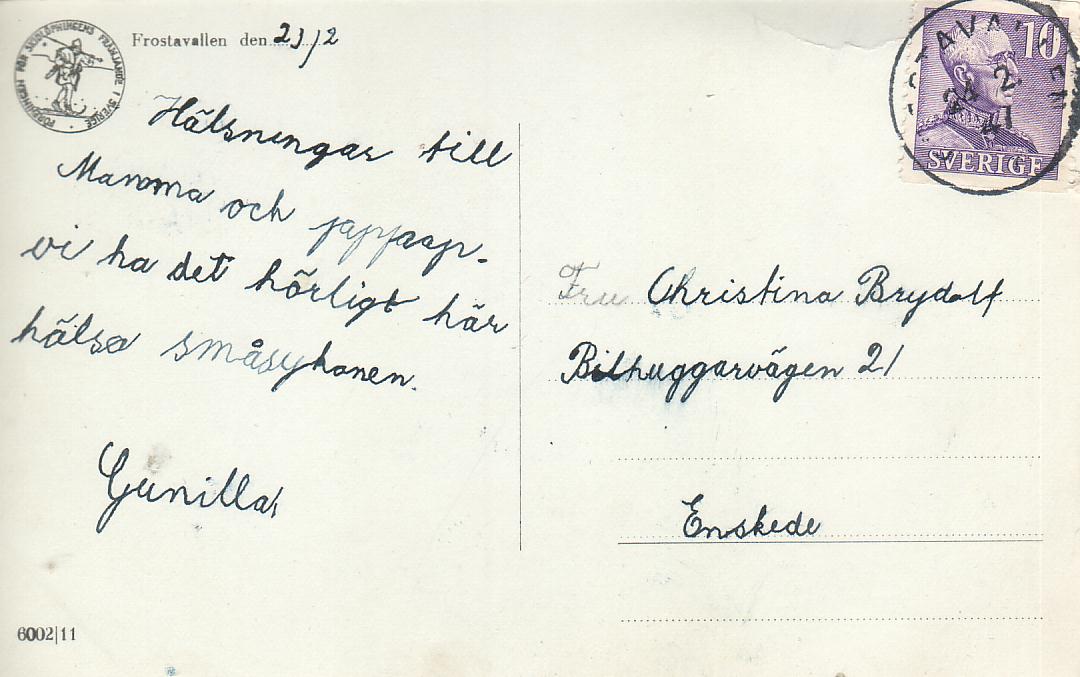 FÖRENINGEN FÖR SKIDLÖPNINGENS FRÄMJANDE I SVERIGE
Frostavallen den 23/2
Hälsningar till
Mamma och pappaap.
vi ha det hörligt här
hälsa småsykonen.
Gunilla
6002|11
10
SVERIGE
24 2
41
Fru Christina Brydolf
Bilhuggarvägen 21
Enskede